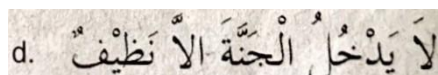 d. لاَ يَدْخُلُ الْجَنَّةَ الاَّ نَظِيْفٌ